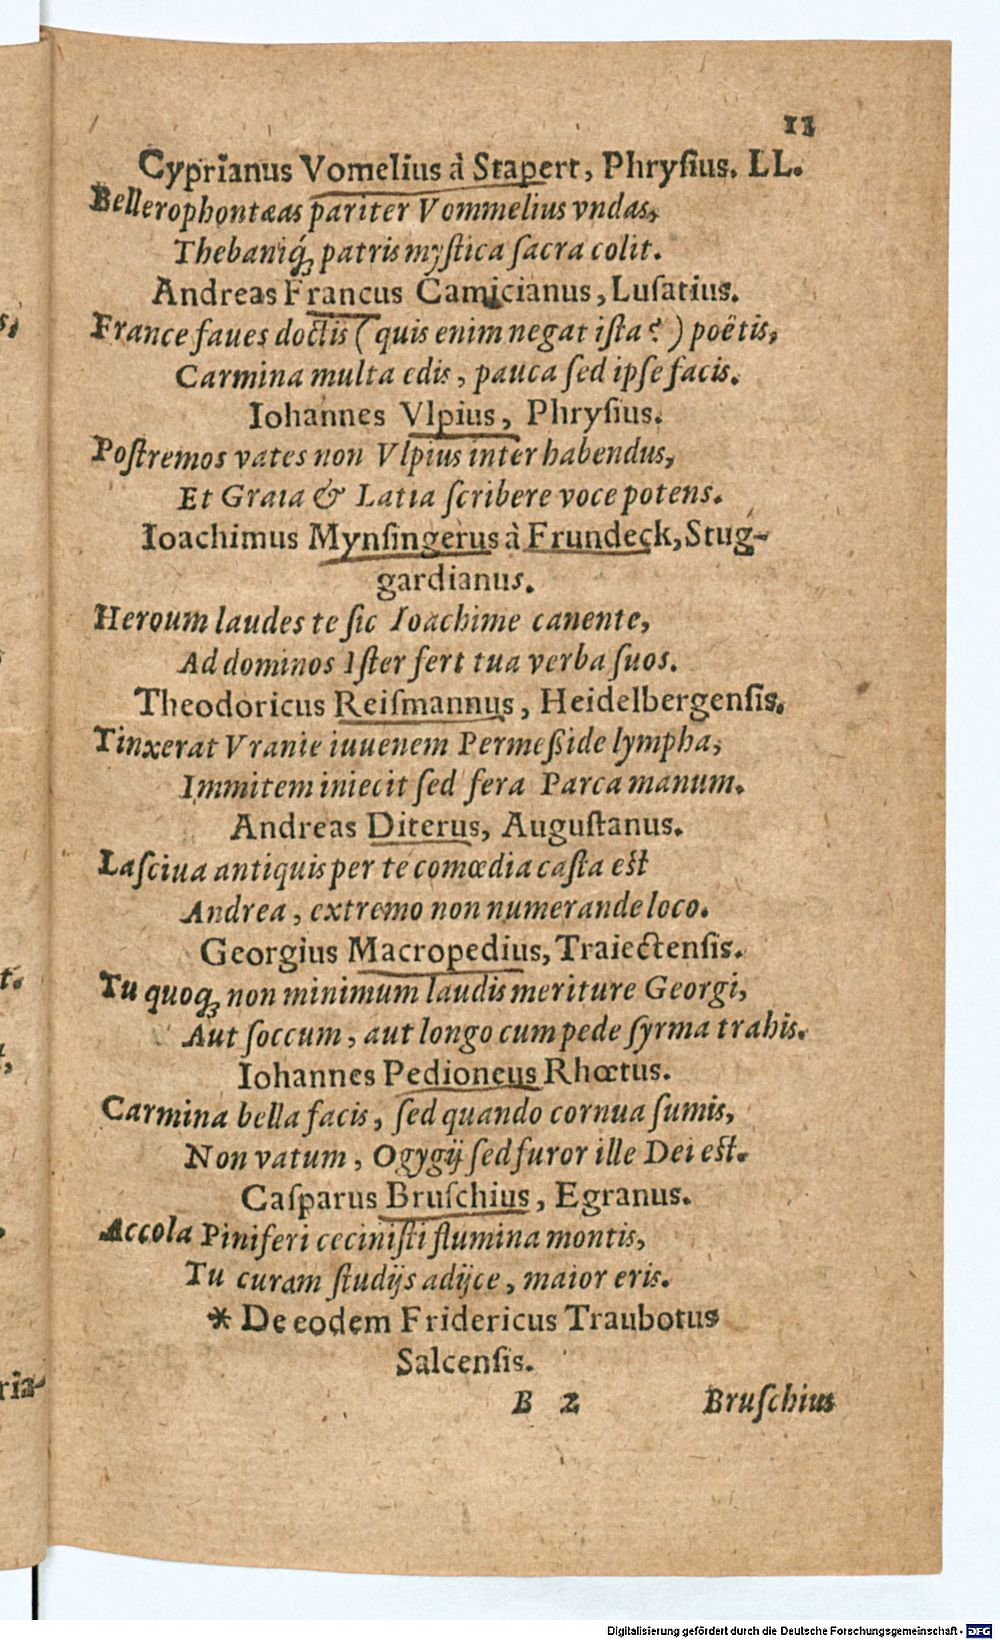 11
Cyprianus Vomelius à Stapert, Phryſius. LL.
Bellerophontæas pariter Vommelius vndas,
Thebaniq́ꝫ patris myſtica ſacra colit.
Andreas Francus Camicianus, Luſatius.
France faues doctis (quis enim negat iſta?) poëtis,
Carmina multa edis, pauca ſed ipſe facis.
Iohannes Vlpius, Phryſius.
Poſtremos vates non Vlpius inter habendus,
Et Graia & Latia ſcribere voce potens.
Ioachimus Mynſingerus à Frundeck, Stug-
gardianus.
Heroum laudes te ſic Ioachime canente,
Ad dominos Iſter fert tua verba ſuos.
Theodoricus Reiſmannus, Heidelbergenſis.
Tinxerat Vranie iuuenem Permeßide lympha,
Immitem iniecit ſed fera Parca manum.
Andreas Diterus, Auguſtanus.
Laſciua antiquis per te comœdia caſta eſt
Andrea, extremo non numerande loco.
Georgius Macropedius, Traiectenſis.
Tu quoqꝫ non minimum laudis meriture Georgi,
Aut ſoccum, aut longo cum pede ſyrma trahis.
Iohannes Pedioneus Rhœtus.
Carmina bella facis, ſed quando cornua ſumis,
Non vatum, Ogygij ſed furor ille Dei eſt.
Caſparus Bruſchius, Egranus.
Accola Piniferi ceciniſti flumina montis,
Tu curam ſtudijs adijce, maior eris.
* De eodem Fridericus Traubotus
Salcenſis.
B 2 Bruſchius
Digitalisierung gefördert durch die Deutsche Forschungsgemeinschaft - DFG